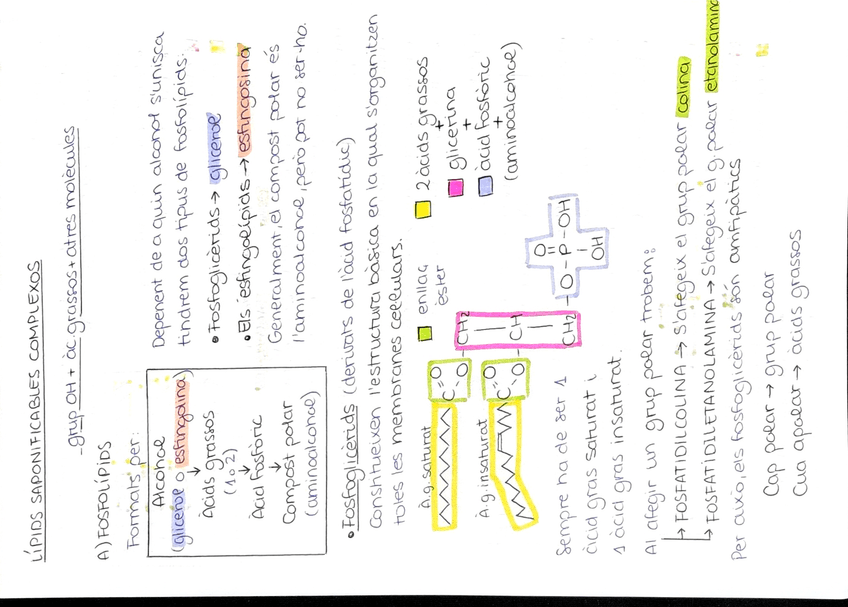 LÍPIDS SAPONIFICABLES COMPLEXOS
-grup OH + àc.grassos + altres molècules
A) FOSFOLÍPIDS
Formats per:
Alcohol
(glicerol o esfingolina)
↓
Àcids grassos
(1 o 2)
↓
Àcid fosfòric
↓
Compost polar
(aminoalcohol)
Depenent de a quin alcohol s'unisca
tindrem dos tipus de fosfolípids.
• Fosfoglicèrids → glicerol
• Els esfingolípids → esfingosina
Generalment, el compost polar és
l'aminoalcohol, però pot no ser-ho.
• Fosfoglicèrids (derivats de l'àcid fosfatídic)
Constitueixen l'estructura bàsica en la qual s'organitzen
totes les membranes cel·lulars.
À.g. saturat
À.g. insaturat
C O O
C O O
CH2
CH
CH2
O
O - P - OH
OH
enllaç
èster
2 àcids grassos
+
glicerina
+
àcid fosfòric
+
(aminoalcohol)
Sempre ha de ser 1
àcid gras saturat i
1 àcid gras insaturat.
Al afegir un grup polar trobem:
→ FOSFATIDILCOLINA → S'afegeix el grup polar colina
→ FOSFATIDILETANOLAMINA → S'afegeix el g.polar etanolamina
Per això, els fosfoglicèrids són amfipàtics
Cap polar → grup polar
Cua apolar → àcids grassos